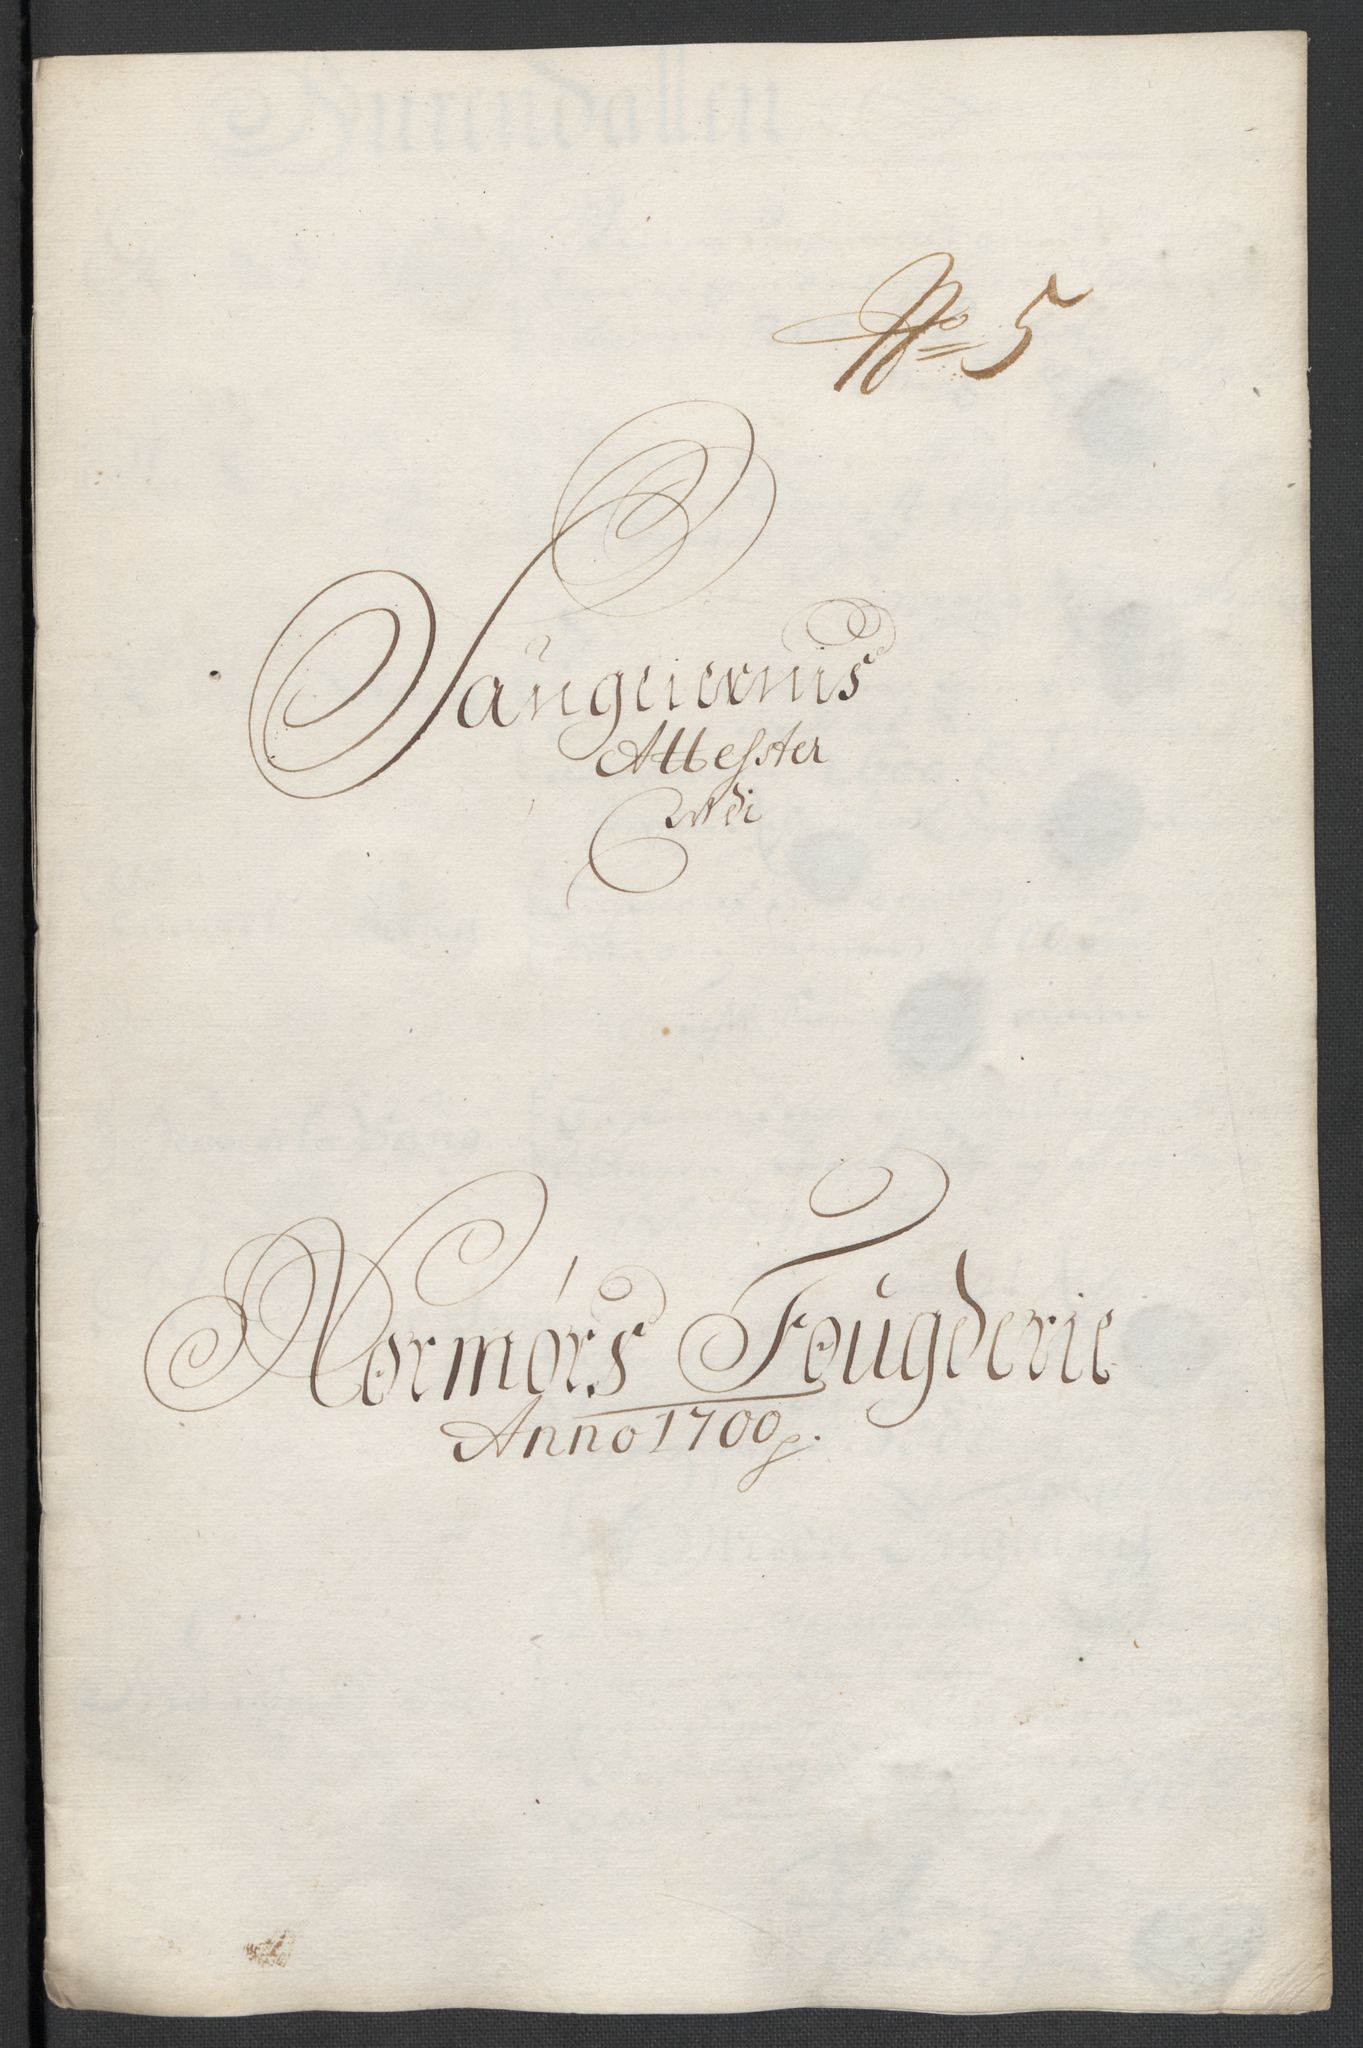 No 5
Saugeiernis
Attesster
Udi
Normørs Fougderie
Anno 1700